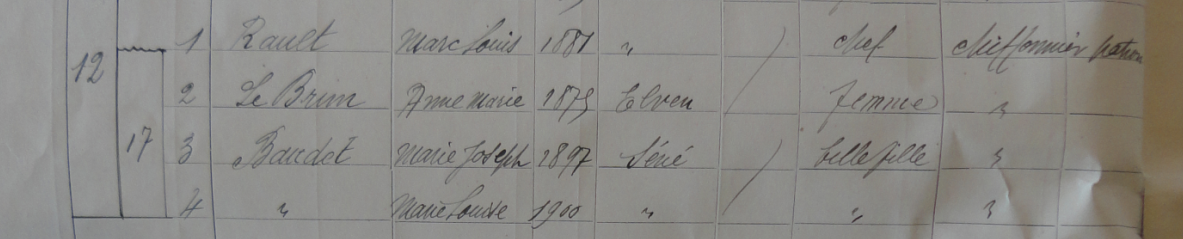 12 1 Rault Marc Louis 1881 " / chef chiffonnier patron
2 Le Brun Anne Marie 1875 Elven / femme "
17 3 Baudet Marie Joseph 1897 Séné / belle fille "
4 " Marie Louise 1900 " / " "